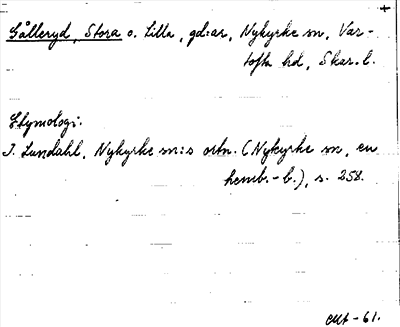 Gålleryd, Stora o. Lilla, gd:ar, Nykyrke sn, Var-
tofta hd, Skar. l.
Etymologi:
I. Lundahl, Nykyrke sn:s ortn. (Nykyrke sn, en
hemb.-b.), s. 258.
-61.